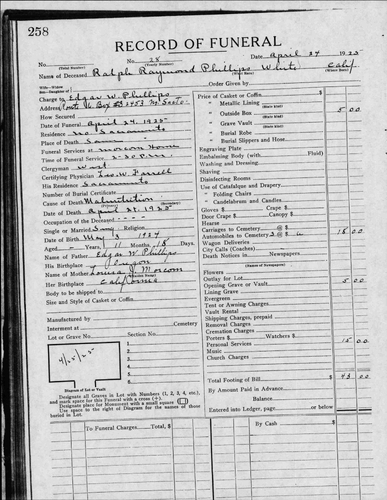 258
RECORD OF FUNERAL
No. 28 Date April 24 1925
(Total Number) (Yearly Number)
Name of Deceased Ralph Raymond Phillips White Calif
Charge to Edgar W. Phillips
Address Route 6 Box
How Secured
Date of Funeral April 24, 1925
Residence No Sacramento
Place of Death Same
Funeral Services at Morcom Home
Time of Funeral Service 2-30 P.M.
Clergyman
Certifying Physician Leo W. Farrell
His Residence Sacramento
Number of Burial Certificate
Cause of Death Malnutrition
Date of Death April 1925
Occupation of the Deceased
Single or Married Religion
Date of Birth May
Aged Years 11 Months Days
Name of Father Edgar W. Phillips
His Birthplace Oregon
Name of Mother Louisa J. Morcom
Her Birthplace California
Body to be shipped to
Size and Style of Casket or Coffin
Manufactured by
Interment at Cemetery
Lot or Grave No. Section No.
1.
2.
3.
4.
5.
6.
Diagram of Lot or Vault
Designate all Graves in Lot with Numbers (1, 2, 3, 4, etc.),
and mark space for this Funeral with a cross (+).
Designate place for Monument with a small square
Use space to right of Diagram for the names of those
buried in Lot.
Order Given by
Price of Casket or Coffin
" Metallic Lining
" Outside Box 5 00
" Grave Vault
" Burial Robe
" Burial Slippers and Hose
Engraving Plate
Embalming Body (with Fluid)
" Washing and Dressing
Shaving
Disinfecting Rooms
Use of Catafalque and Drapery
" Folding Chairs
" Candelabrum and Candles
Gloves $ Crape $
Door Crape $
Hearse
Carriages to Cemetery @ $
Automobiles to Cemetery 18 00
Wagon Deliveries
City Calls (Coaches)
Death Notices in Newspapers
(Names of Newspapers)
Flowers
Outlay for Lot
Opening Grave or Vault 5 00
Lining Grave
Evergreen
Tent or Awning Charges
Vault Rental
Shipping Charges, prepaid
Removal Charges
Cremation Charges
Porters $ Watchers $
Personal Services 15 00
Music
Church Charges
Total Footing of Bill $ 43 00
By Amount Paid in Advance
Balance
Entered into Ledger, page or below
To Funeral Charges, Total $
By Cash $